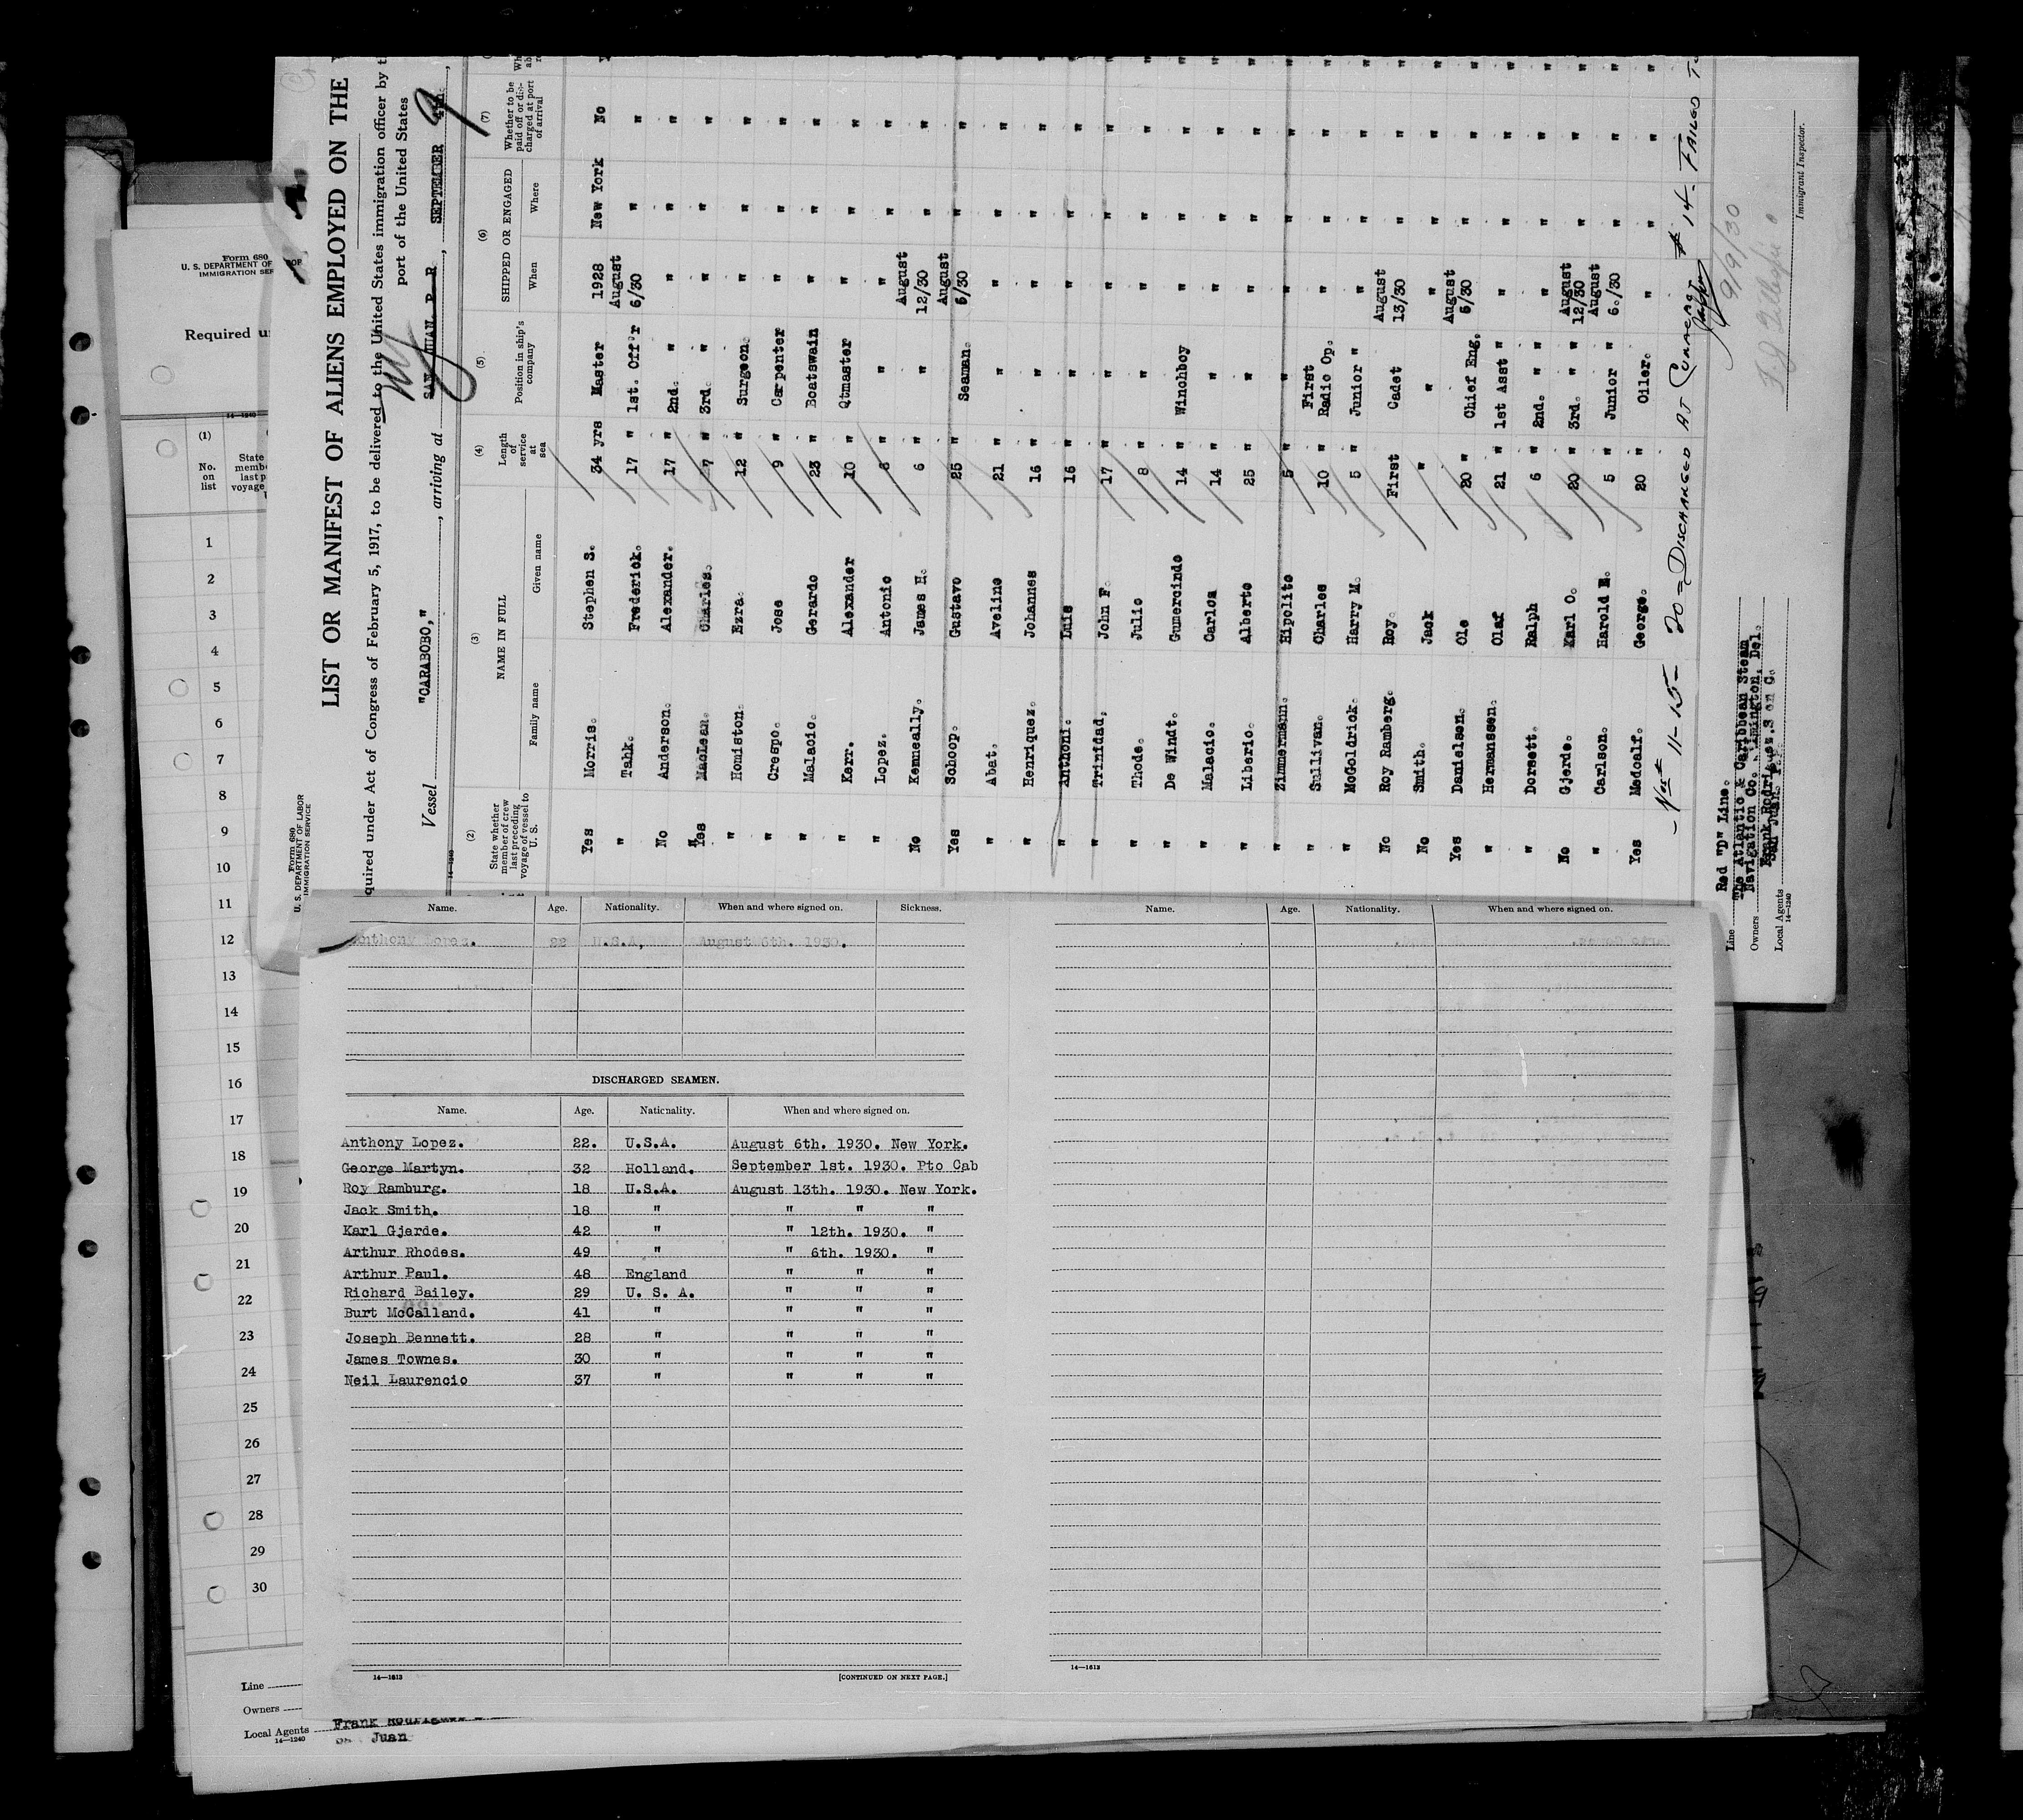 Form 680
U. S. DEPARTMENT OF
IMMIGRATION SER
Required u
14—1240
(1)
No.
on
list
State
membe
last p
voyage
1
2
3
4
5
6
7
8
9
10
11
12
13
14
15
16
17
18
19
20
21
22
23
24
25
26
27
28
29
30
Line
Owners
Local Agents
14—1240
Frank Rodriguez
Juan
Form 680
U. S. DEPARTMENT OF LABOR
IMMIGRATION SERVICE
LIST OR MANIFEST OF ALIENS EMPLOYED ON THE
quired under Act of Congress of February 5, 1917, to be delivered to the United States immigration officer by t
port of the United States
Vessel "CARABOBO," , arriving at SAN JUAN. P R , SEPTEMBER 4th. ,
ny 9
14—1240
(2) State whether member of crew last preceding voyage of vessel to U. S.
(3) NAME IN FULL
Family name Given name
(4) Length of service at sea
(5) Position in ship's company
(6) SHIPPED OR ENGAGED
When Where
(7) Whether to be paid off or discharged at port of arrival
Yes Morris. Stephen S. 34 yrs Master 1928 New York No
" Tahk. Frederick. 17 " 1st. Off'r August 6/30 " "
No Anderson. Alexander. 17 " 2nd. " " " "
Yes MacLean. Charles. 7 " 3rd. " " " "
" Homiston. Ezra. 12 " Surgeon. " " "
" Crespo. Jose 9 " Carpenter " " "
" Malacio. Gerardo 23 " Boatswain " " "
" Kerr. Alexander 10 " Qtmaster " " "
" Lopez. Antonio 8 " " " " "
No Kenneally. James H. 6 " " August 12/30 " "
Yes Schoop. Gustavo 25 " Seaman. August 6/30 " "
" Abat. Avelino 21 " " " " "
" Henriquez. Johannes 16 " " " " "
" Anthoni. Luis 16 " " " " "
" Trinidad, John F. 17 " " " " "
" Thode. Julio 8 " " " " "
" De Windt. Gumercindo 14 " Winchboy " " "
" Malacio. Carlos 14 " " " " "
" Liberic. Alberto 25 " " " " "
" Zimmermann. Hipolito 5 " " " " "
" Sullivan. Charles 10 " First Radio Op. " " "
" McGoldrick. Harry M. 5 " Junior " " " "
No Roy Ramberg. Roy. First Cadet August 13/30 " "
No Smith. Jack " " " " "
Yes Danielsen. Ole 20 " Chief Eng. August 6/30 " "
" Hermanssen. Olaf 21 " 1st Asst " " " "
" Dorsett. Ralph 6 " 2nd. " " " " "
No Gjerde. Karl O. 20 " 3rd. " " August 12/30 " "
" Carlson. Harold E. 5 " Junior " August 6./30 " "
Yes Medcalf. George. 20 " Oiler. " " "
- Nos # 11-15- 20 = DISCHARGED AT # 14 - FAILED TO
9/9/30
Immigrant Inspector.
Line Red "D" Line.
The Atlantic & Caribbean Steam
Owners Navigation Co. Wilmington, Del.
Local Agents
14—1240
Name. Age. Nationality. When and where signed on. Sickness.
Anthony Lopez. 22 U.S.A. August 6th. 1930.
DISCHARGED SEAMEN.
Name. Age. Nationality. When and where signed on.
Anthony Lopez. 22. U.S.A. August 6th. 1930. New York.
George Martyn. 32 Holland. September 1st. 1930. Pto Cab
Roy Ramburg. 18 U.S.A. August 13th. 1930. New York.
Jack Smith. 18 " " " "
Karl Gjerde. 42 " " 12th. 1930. "
Arthur Rhodes. 49 " " 6th. 1930. "
Arthur Paul. 48 England " " "
Richard Bailey. 29 U. S. A. " " "
Burt McCalland. 41 " " " "
Joseph Bennett. 28 " " " "
James Townes. 30 " " " "
Neil Laurencio 37 " " " "
14—1613 [CONTINUED ON NEXT PAGE.]
Name. Age. Nationality. When and where signed on.
14—1613